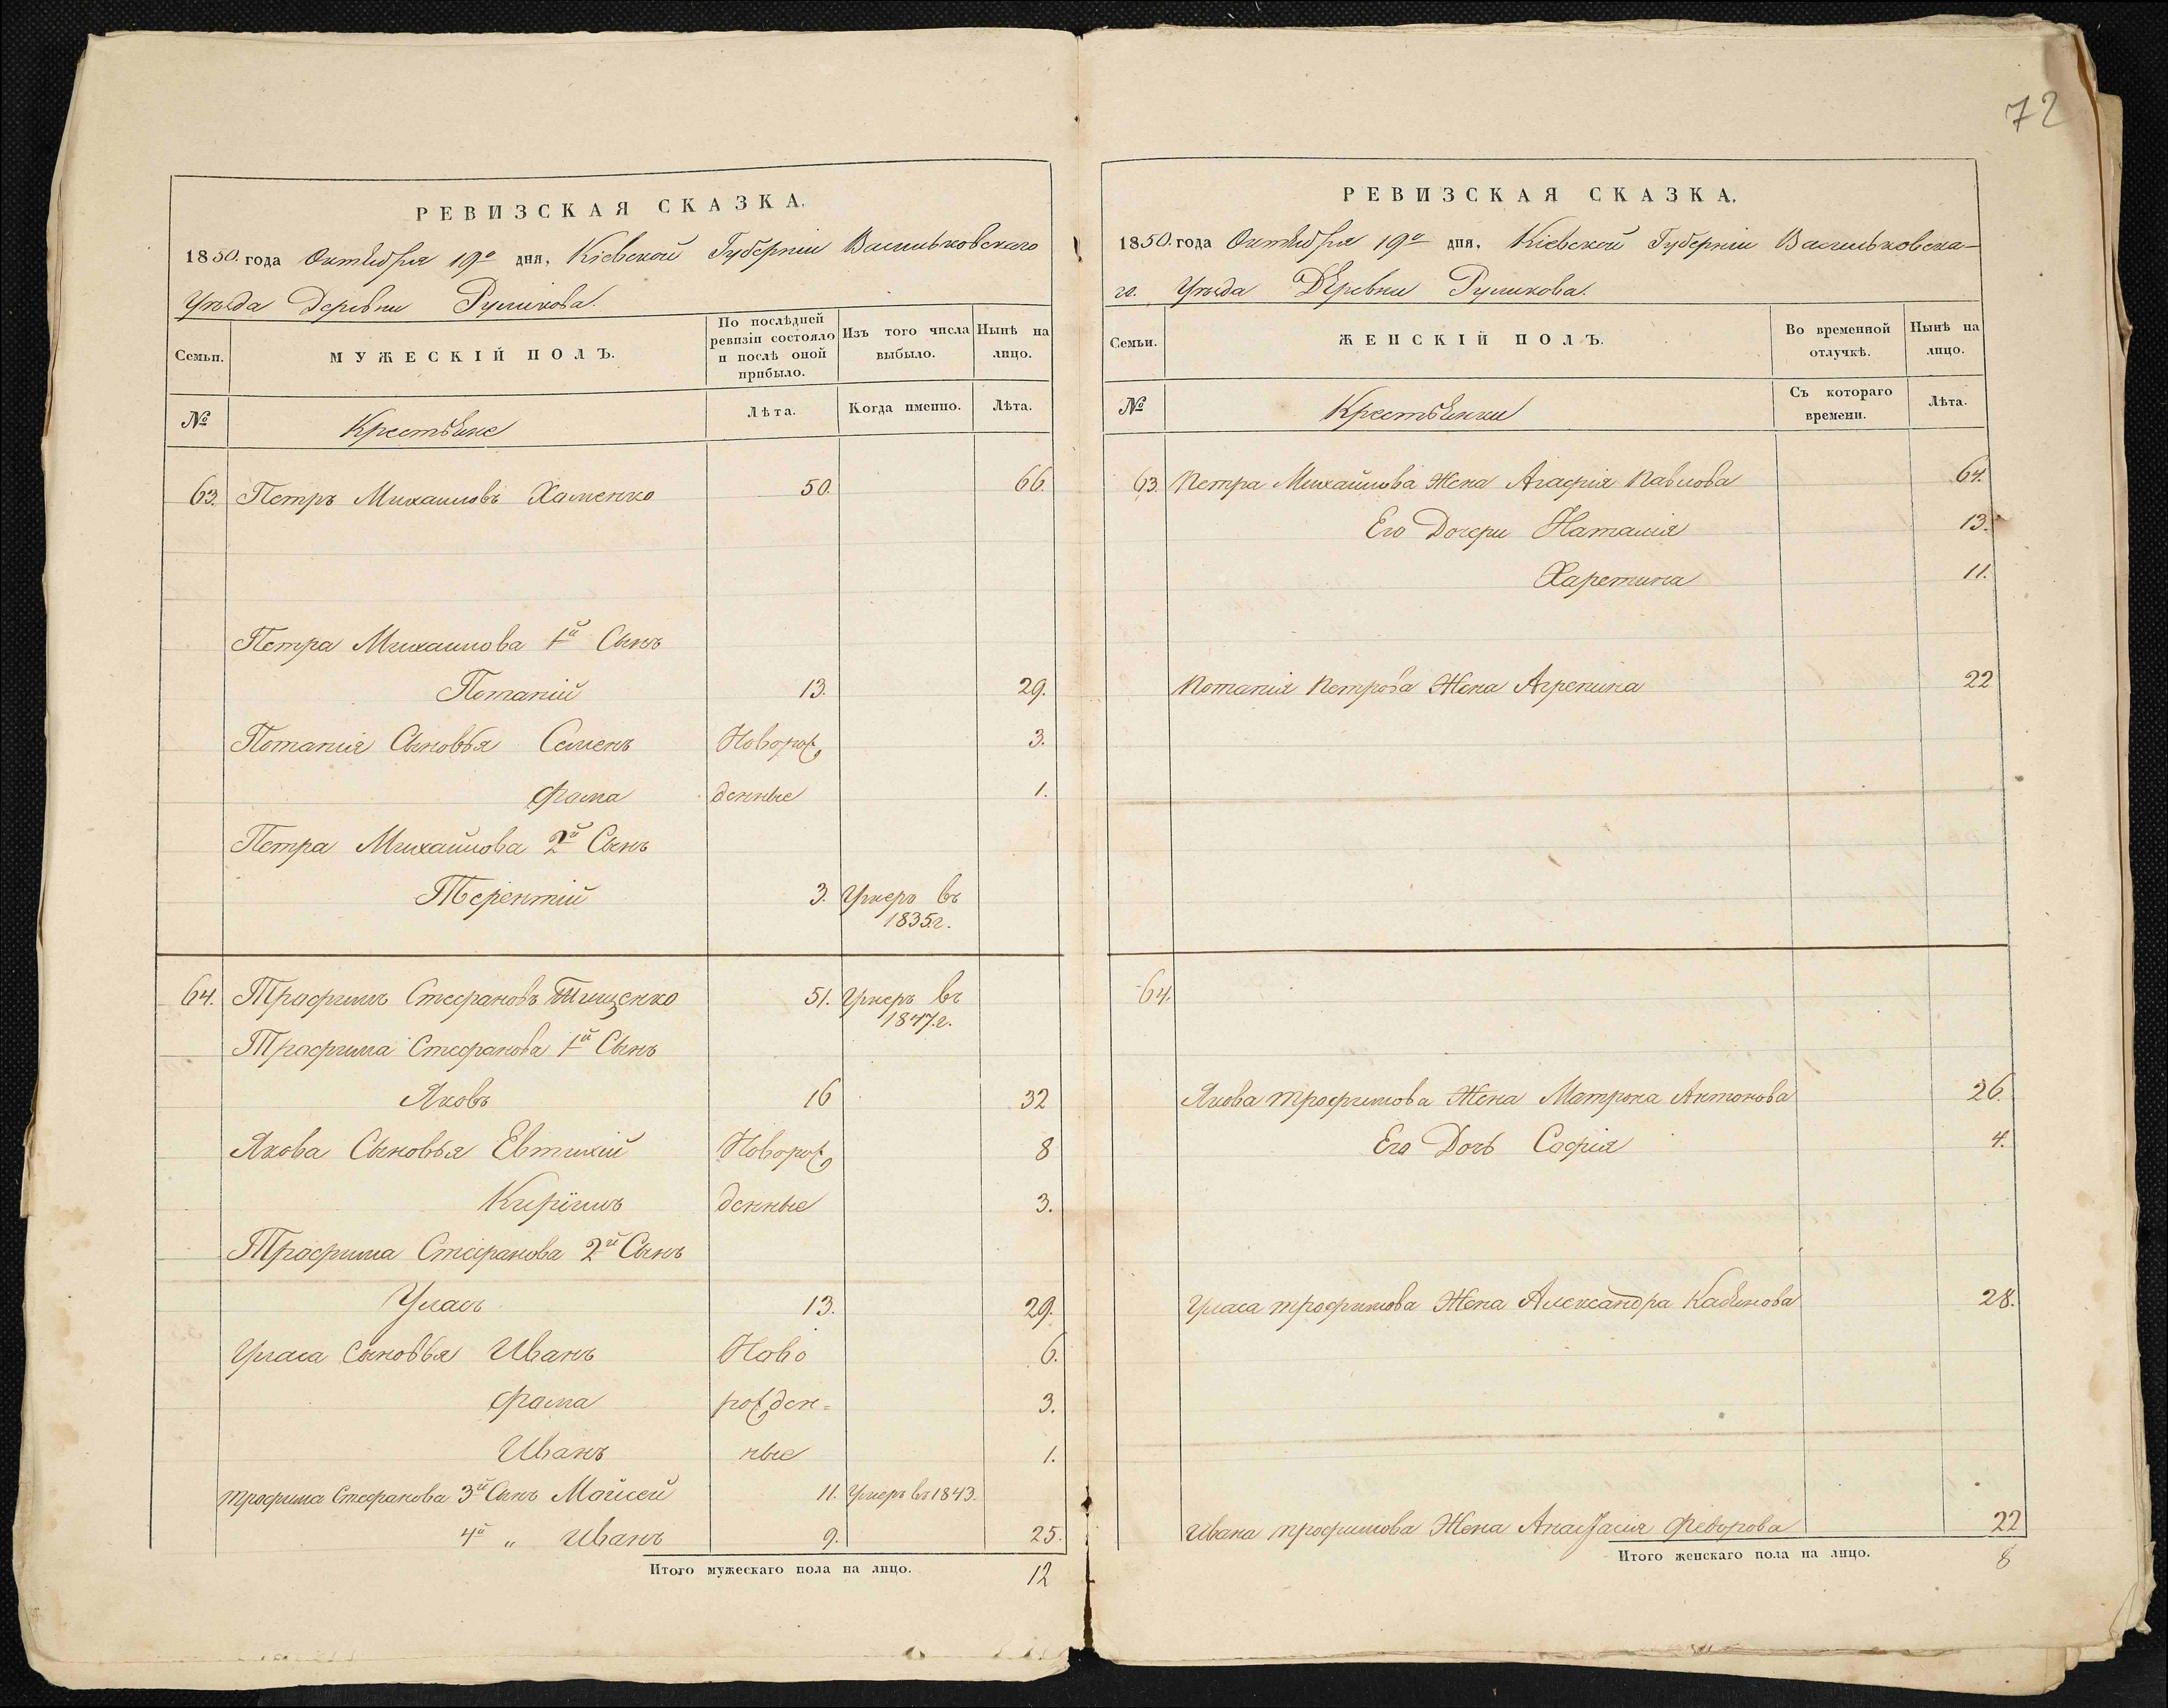 72
РЕВИЗСКАЯ СКАЗКА.
1850. года Октября 19го дня, Кіевской Губерніи Васильковскаго
Уѣзда Деревни Руликова.
Семьи.
МУЖЕСКІЙ ПОЛЪ.
По послѣдней ревизіи состояло и послѣ оной прибыло.
Изъ того числа выбыло.
Нынѣ на лицо.
№
Крестьяне
Лѣта.
Когда именно.
Лѣта.
63. Петръ Михаиловъ Хоменко 50. 66.
Петра Михаилова 1й Сынъ
Потапій 13. 29.
Потапія Сыновья Семенъ Новорож 3.
Фома денные 1.
Петра Михайлова 2й Сынъ
Терентій 3. Умеръ въ
1835г.
64. Трофимъ Стефановъ Тищенко 51. Умеръ въ
1847.г.
Трофима Стефанова 1й Сынъ
Яковъ 16 32
Якова Сыновья Евтихій Новорож 8
Кирилъ денные 3.
Трофима Стефанова 2й Сынъ
Уласъ 13. 29.
Уласа Сыновья Иванъ Ново 6.
Фома рожден= 3.
Иванъ ные 1.
Трофима Стефанова 3й Сынъ Мойсей 11. Умеръ въ 1843.
4й " Иванъ 9. 25.
Итого мужескаго пола на лицо. 12
РЕВИЗСКАЯ СКАЗКА.
1850. года Октября 19го дня, Кіевской Губерніи Васильковска-
го. Уѣзда Деревни Руликова.
Семьи.
ЖЕНСКІЙ ПОЛЪ.
Во временной отлучкѣ.
Нынѣ на лицо.
№
Крестьянки
Съ котораго времени.
Лѣта.
63. Петра Михайлова Жена Агафія Павлова 64.
Его Дочери Наталія 13.
Харетина 11.
Потапія Петрова Жена Агрепина 22
64.
Якова Трофимова Жена Матрона Антонова 26.
Его Дочь Софія 4.
Уласа Трофимова Жена Александра 28.
Ивана Трофимова Жена Анастасія Федорова 22
Итого женскаго пола на лицо. 8